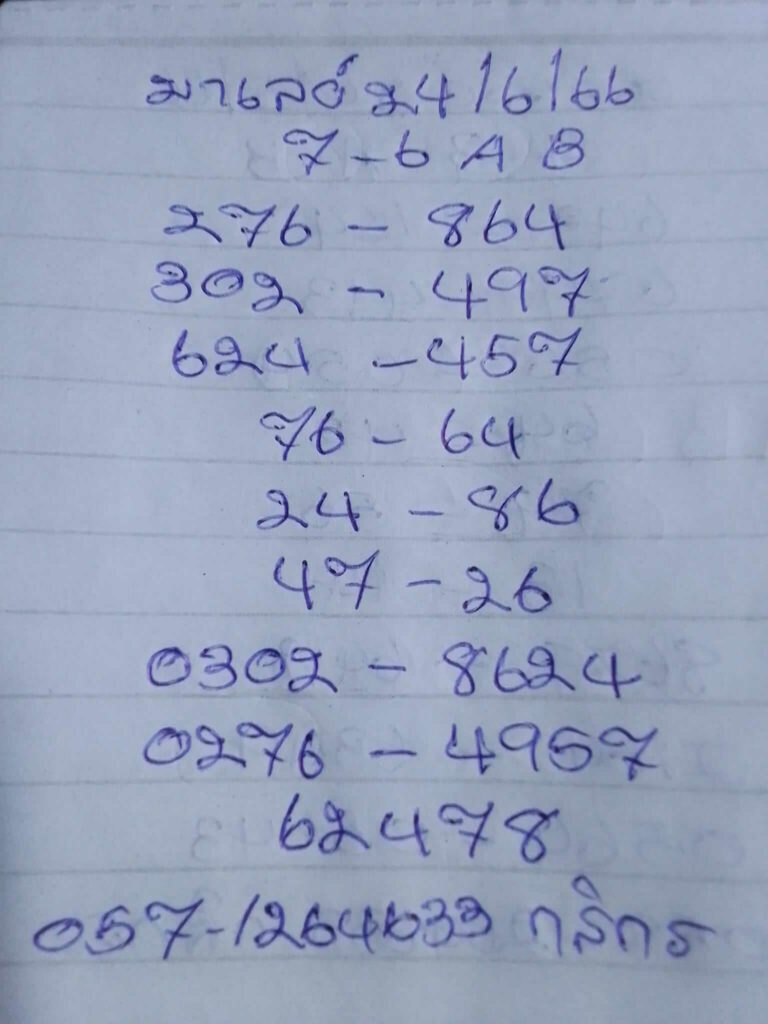 มาเลย์ 24/6/66
7-6 A B
276 - 864
302 - 497
624 - 457
76 - 64
24 - 86
47 - 26
0302 - 8624
0276 - 4957
62478
057-1264633 กสิกร